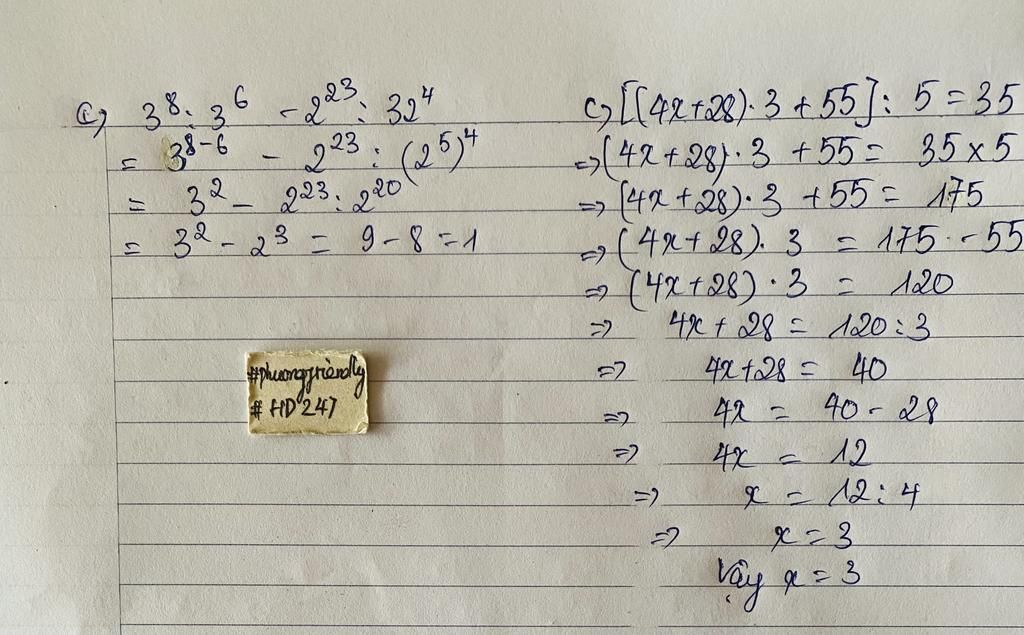 a, 3⁸ : 3⁶ - 2²³ : 32⁴
= 3⁸⁻⁶ - 2²³ : (2⁵)⁴
= 3² - 2²³ : 2²⁰
= 3² - 2³ = 9 - 8 = 1
#phuongfriendly
# HD 247
c, [(4x+28) · 3 + 55] : 5 = 35
=> (4x+28) · 3 + 55 = 35 x 5
=> (4x+28) · 3 + 55 = 175
=> (4x+28) · 3 = 175 - 55
=> (4x+28) · 3 = 120
=> 4x + 28 = 120 : 3
=> 4x+28 = 40
=> 4x = 40 - 28
=> 4x = 12
=> x = 12 : 4
=> x = 3
Vậy x = 3